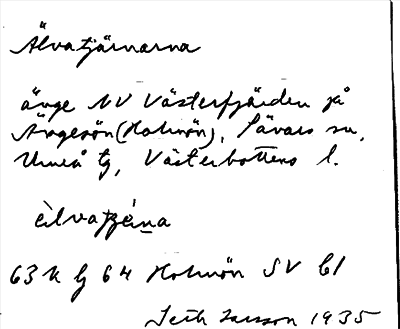 Älvatjärnarna
änge NV Västerfjärden på
Ängesön (Holmön), Sävars sn,
Umeå tg, Västerbottens l.
èlvatjæ̀ṇa
63 k g 64 Holmön SV bl
Seth Larsson 1935